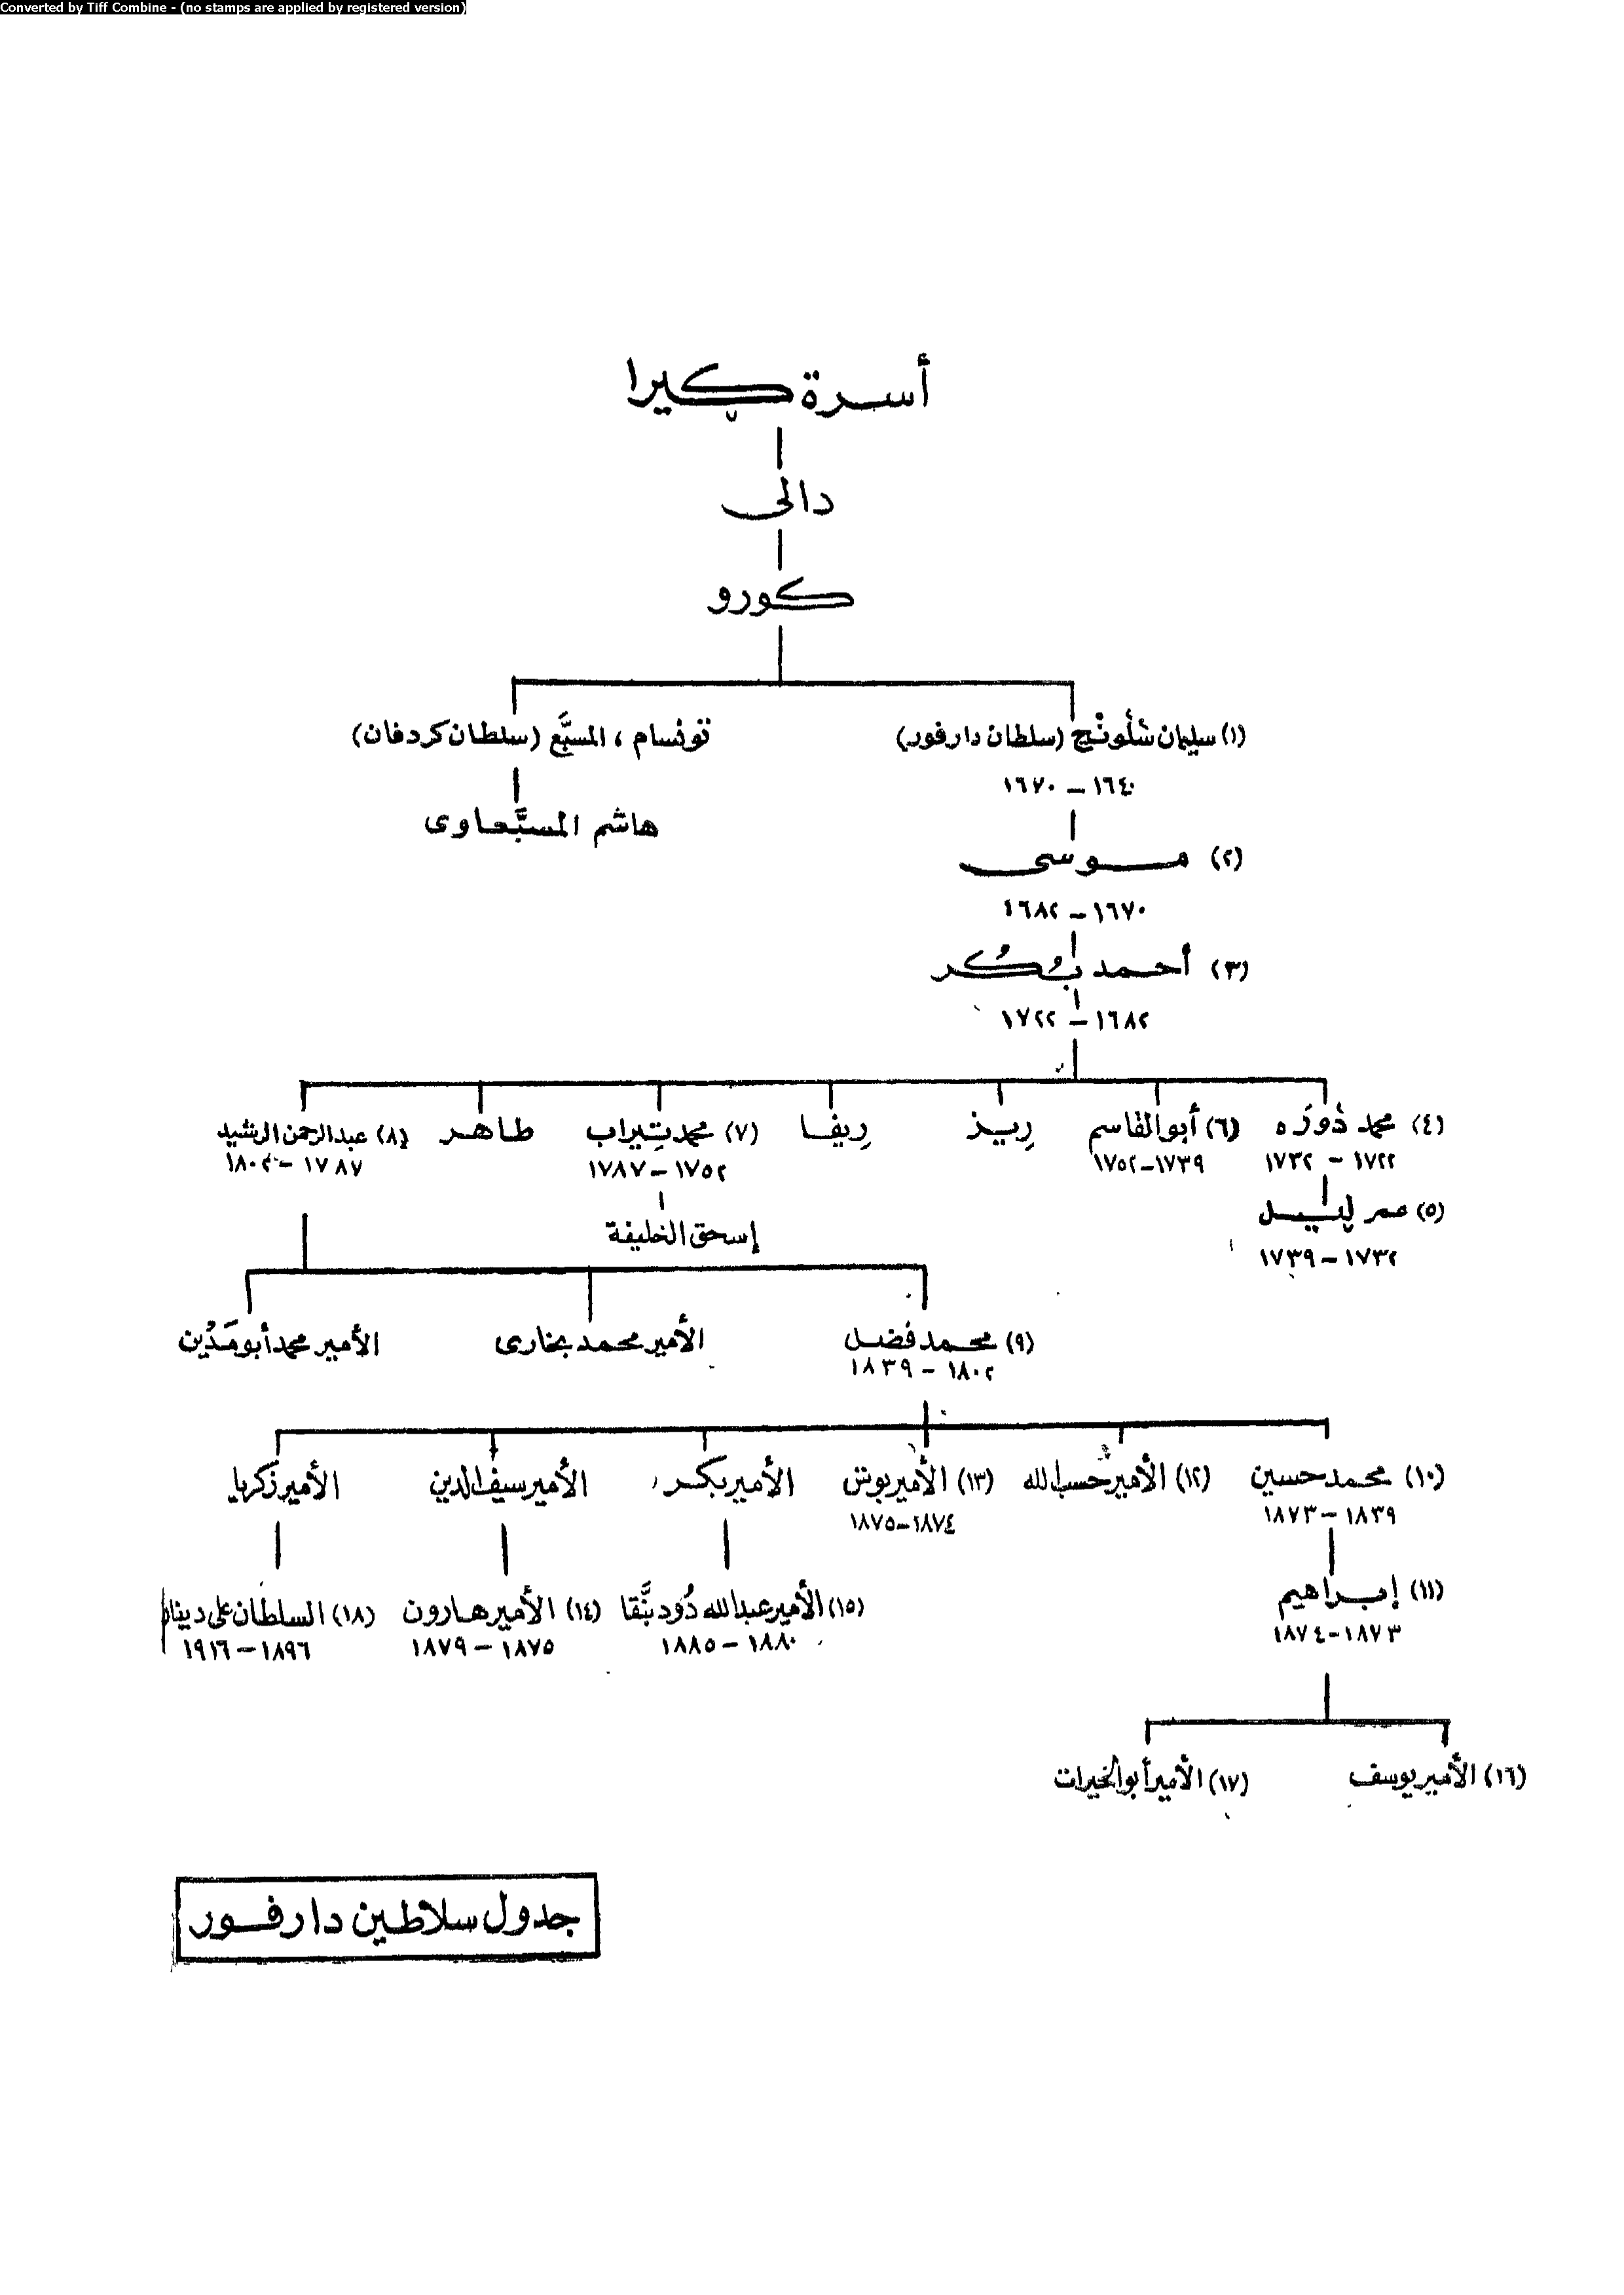 Converted by Tiff Combine - (no stamps are applied by registered version)
أسرة كيرا
دالى
كورو
(١) سليمان سُلُونْج (سلطان دارفور)
١٦٤٠ – ١٦٧٠
تونسام ، المسبَّع (سلطان كردفان)
هاشم المسبَّعاوى
(٢) موسى
١٦٧٠ – ١٦٨٢
(٣) أحمد بُكُر
١٦٨٢ – ١٧٢٢
(٤) محمد دُورَه
١٧٢٢ – ١٧٣٢
(٦) أبو القاسم
١٧٣٩ – ١٧٥٢
رِيز
رِيفا
(٧) محمد تِيراب
١٧٥٢ – ١٧٨٧
طاهر
(٨) عبد الرحمن الرشيد
١٧٨٧ – ١٨٠٢
(٥) عمر لِيل
١٧٣٢ – ١٧٣٩
إسحق الخليفة
(٩) محمد فضل
١٨٠٢ – ١٨٣٩
الأمير محمد بخارى
الأمير محمد أبو مَدْين
(١٠) محمد حسين
١٨٣٩ – ١٨٧٣
(١٢) الأمير حسب الله
(١٣) الأمير بوش
١٨٧٤ – ١٨٧٥
الأمير بكر
الأمير سيف الدين
الأمير زكريا
(١١) إبراهيم
١٨٧٣ – ١٨٧٤
(١٥) الأمير عبد الله دُود بَنَّقا
١٨٨٠ – ١٨٨٥
(١٤) الأمير هارون
١٨٧٥ – ١٨٧٩
(١٨) السلطان على دينار
١٨٩٦ – ١٩١٦
(١٦) الأمير يوسف
(١٧) الأمير أبو الخيرات
جدول سلاطين دارفور